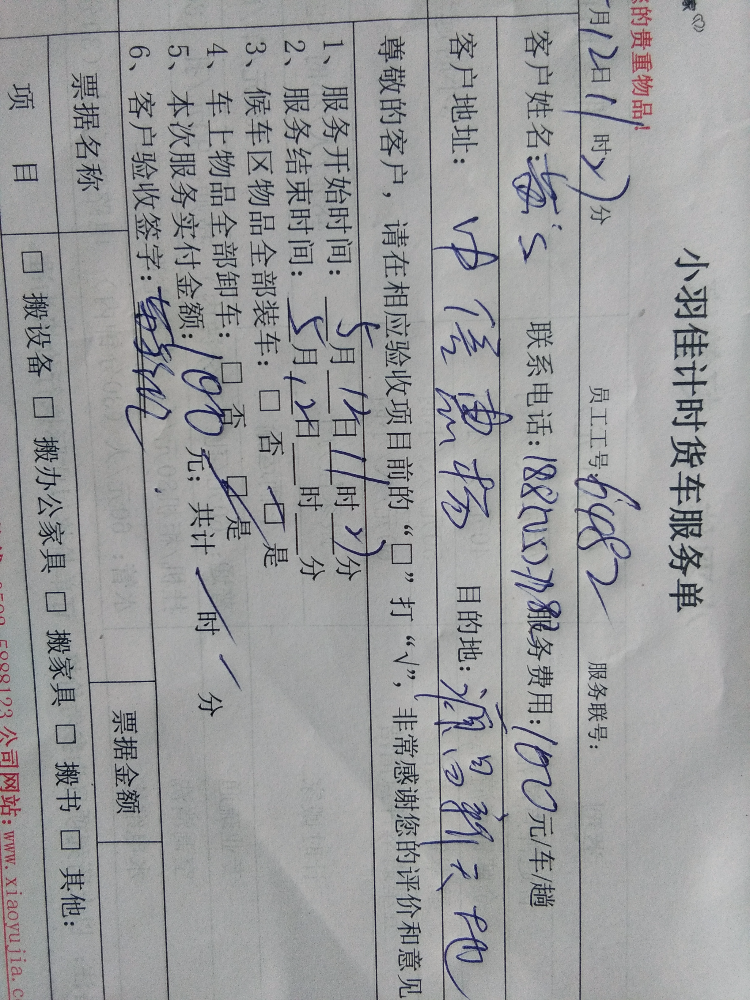 家
您的贵重物品!
小羽佳计时货车服务单
月12日11时21分 员工工号:6982 服务联号:
客户姓名: 联系电话: 服务费用:100元/车/趟
客户地址: 中信惠扬 目的地: 源昌新天地
尊敬的客户,请在相应验收项目前的“□”打“√”,非常感谢您的评价和意见
1、服务开始时间: 5月12日11时21分
2、服务结束时间: 5月12日 时 分
3、候车区物品全部装车: □ 否 □ 是
4、车上物品全部卸车: □ 否 □ 是
5、本次服务实付金额: 100元; 共计 时 分
6、客户验收签字:
票据名称 票据金额
项 目 □ 搬设备 □ 搬办公家具 □ 搬家具 □ 搬书 □ 其他:
5888123 公司网站: www.xiaoyujia.c